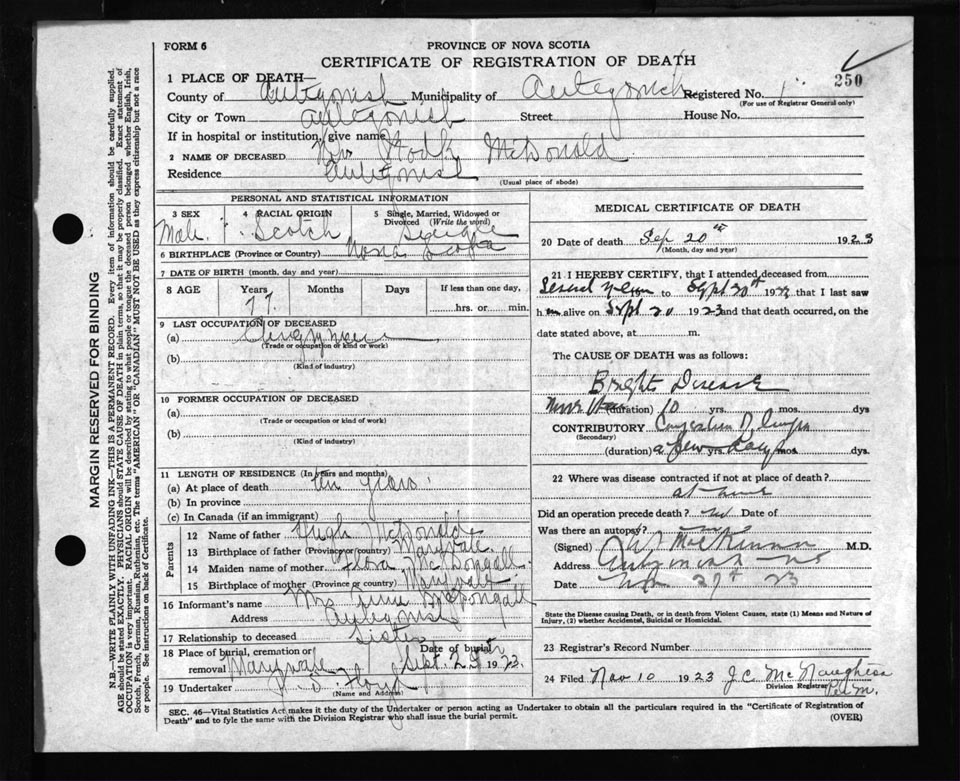 FORM 6
PROVINCE OF NOVA SCOTIA
CERTIFICATE OF REGISTRATION OF DEATH
250
1 PLACE OF DEATH—
County of Antigonish Municipality of Antigonish Registered No. 1
(For use of Registrar General only)
City or Town Antigonish Street House No.
If in hospital or institution, give name
2 NAME OF DECEASED McDonald
Residence Antigonish
(Usual place of abode)
PERSONAL AND STATISTICAL INFORMATION
3 SEX 4 RACIAL ORIGIN 5 Single, Married, Widowed or Divorced (Write the word)
Male Scotch Single
6 BIRTHPLACE (Province or Country) Nova Scotia
7 DATE OF BIRTH (month, day and year)
8 AGE Years Months Days If less than one day,
77 hrs. or min.
9 LAST OCCUPATION OF DECEASED
(a) Clergyman
(Trade or occupation or kind or work)
(b)
(Kind of industry)
10 FORMER OCCUPATION OF DECEASED
(a)
(Trade or occupation or kind of work)
(b)
(Kind of industry)
11 LENGTH OF RESIDENCE (In years and months)
(a) At place of death ten years
(b) In province
(c) In Canada (if an immigrant)
Parents
12 Name of father Hugh McDonald
13 Birthplace of father (Province or country) Maryvale
14 Maiden name of mother Flora McDougall
15 Birthplace of mother (Province or country) Maryvale
16 Informant's name Mrs McDougall
Address Antigonish
17 Relationship to deceased Sister
18 Place of burial, cremation or removal Maryvale Date of burial Sept. 1923
19 Undertaker Floyd
(Name and Address)
MEDICAL CERTIFICATE OF DEATH
20 Date of death Sep 20th 1923
(Month, day and year)
21 I HEREBY CERTIFY, that I attended deceased from
Several years to Sept 20th 19 that I last saw
him alive on Sept 20 1923 and that death occurred, on the
date stated above, at m.
The CAUSE OF DEATH was as follows:
Brights Disease
more than (duration) 10 yrs. mos. dys
CONTRIBUTORY Congestion of lungs
(Secondary)
(duration) a few yrs. days mos. dys.
22 Where was disease contracted if not at place of death?
at home
Did an operation precede death? no Date of
Was there an autopsy? no
(Signed) MacKinnon M.D.
Address Antigonish NS
Date 23
State the Disease causing Death, or in death from Violent Causes, state (1) Means and Nature of Injury, (2) whether Accidental, Suicidal or Homicidal.
23 Registrar's Record Number
24 Filed Nov 10 1923 J.C. McNaughton
Division Registrar
Per M.
SEC. 46—Vital Statistics Act makes it the duty of the Undertaker or person acting as Undertaker to obtain all the particulars required in the "Certificate of Registration of
Death" and to fyle the same with the Division Registrar who shall issue the burial permit.
(OVER)
MARGIN RESERVED FOR BINDING
N.B.—WRITE PLAINLY WITH UNFADING INK—THIS IS A PERMANENT RECORD. Every item of information should be carefully supplied.
AGE should be stated EXACTLY. PHYSICIANS should STATE CAUSE OF DEATH in plain terms, so that it may be properly classified. Exact statement of
OCCUPATION is very important. RACIAL ORIGIN will be described by stating to what people or tongue the deceased person belonged whether English, Irish,
Scotch, French, German, Russian, Ruthenian, etc. The terms "AMERICAN" OR "CANADIAN" MUST NOT BE USED as they express citizenship but not a race
or people. See instructions on back of Certificate.